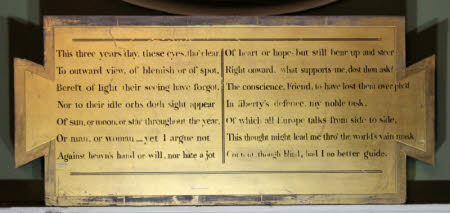 This three years day, these eyes, tho' clear,
To outward view, of blemish or of spot,
Bereft of light their seeing have forgot,
Nor to their idle orbs doth sight appear
Of sun, or moon, or star throughout the year,
Or man, or woman — yet I argue not
Against heavn's hand or will, nor bate a jot
Of heart or hope, but still bear up and steer
Right onward. what supports me, dost thou ask?
The conscience, Friend, to have lost them over ply'd
In liberty's defence, my noble task,
Of which all Europe talks from side to side,
This thought might lead me thro' the world's vain mask
Content though blind, had I no better guide.